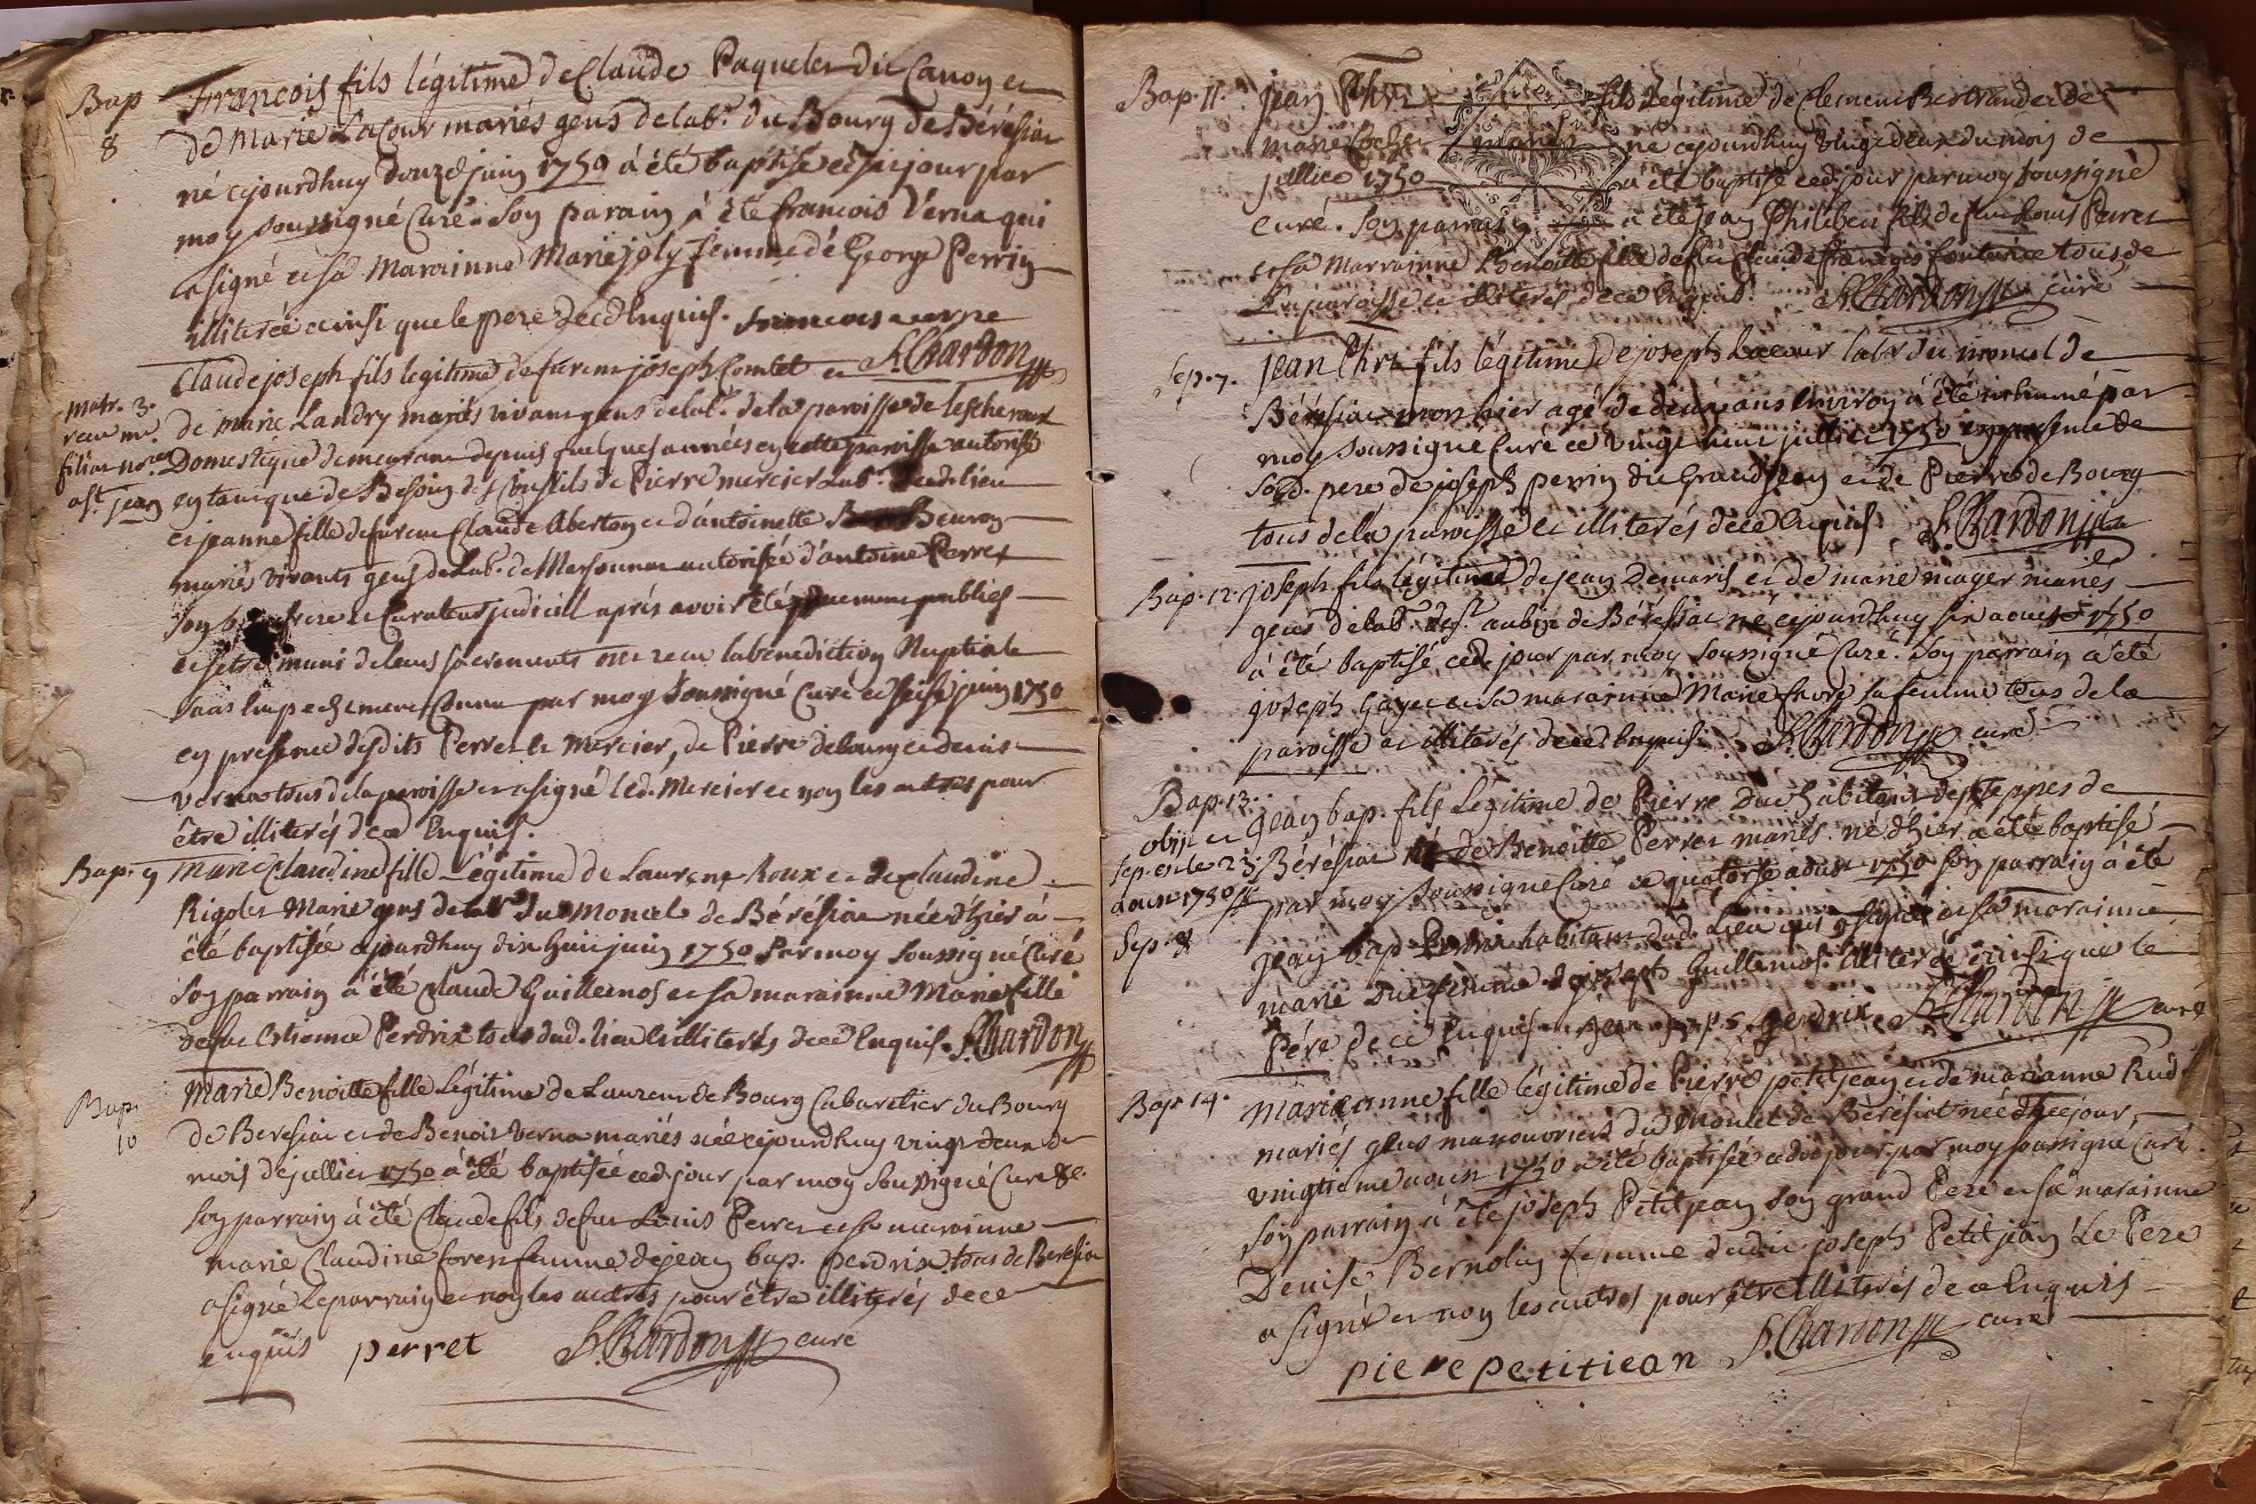 Bap 8
François fils légitime de Claude Paquelet dit Canon et
de Marie Lacour mariés gens de lab.r du Bourg de Béréśiat
né cejourdhuy douze juin 1750 à été baptisé cesusjour par
moy soussigné Curé. Son parain à été francois Verna qui
a signé et sa Marainne Marie joly femme de George Perrin
illiterée ainsi que le pere de ce Enquis. francois verne
S. Chardon
Matr. 3.
Claude joseph fils legitime de furent joseph Comtet et
de Marie Landry mariés vivant gens de lab.r de la paroisse de lescheroux
Domestique demeurant depuis quelques années en cette paroisse autorisé
en tant que de Besoin de Pierre mercier Lab.r dud. lieu
et jeanne fille de furent Claude Aberton et d'antoinette Beuron
mariés vivants gens de Lab.r de Marsonnas autorisée d'antoine Perret
son frere et Curateur judiciell aprés avoir été publiés
et setre muni de leurs sacrements ont recu la benediction Nuptiale
sans Empechement Connu par moy Soussigné Curé ce seise juin 1750
en presence desdits Perret et Mercier, de Pierre debourg et denis
verna tous de la paroisse et a signé led. Mercier et non les autres pour
être illiterés de ce Enquis.
Bap. 9
Marie Claudine fille Légitime de Laurent Roux et de Claudine
Rigolet Marié gens de lab.r du Moncel de Béréśiat née d'hier à
été baptisée cejourdhuy dix huit juin 1750 Par moy Soussigné Curé
Son parrain à été Claude Guillemos et sa marainne Marie fille
de feu Etienne Perdrix tous dud. lieu et illiterés de ce Enquis. S. Chardon
Bap. 10
Marie Benoitte fille Légitime de Laurent de Bourg Cabaretier du Bourg
de Beresiat et de Benoit Verna mariés née cejourdhuy vingt deux du
mois de juillet 1750 à été baptisée ced. jour par moy Soussigné Curé &c.
Son parrain à été Claude fils de feu Louis Perret et sa marainne
marie Claudine foret femme de jean bap. perdrix tous de Beresiat
a signé Le parrain et non les autres pour être illiterés de ce
enquis perret S. Chardon curé
Bap. 11.
jean Phrt fils Légitime de Clement Bertrand et de
marie Cochet mariés né cejourdhuy vingt deux du mois de
juillet 1750 à été baptisé ced. jour par moy soussigné
curé. Son parrain à été Jean Philibert fils de feu Louis Perret
et sa Marrainne Benoitte fille de feu Claude francois fontaine tous de
La paroisse et illiterés de ce Enquis. S. Chardon curé
Sep. 7.
jean Phrt fils légitime de joseph Lacour labr du moncel de
Béréśiat mort hier agé de deux ans Environ à été inhumé par
moy soussigné Curé ce vingt huit juillet 1750 en presence de
sond. pere de joseph perrin dit Grandjean et de Pierre de Bourg
tous de la paroisse et illiterés de ce Enquis. S. Chardon
Bap. 12.
joseph fils légitime de jean Demaris et de marie mayer mariés
gens de lab.r de St. aubin de Béréśiat né cejourdhuy six aoust 1750
à été baptisé ced. jour par moy Soussigné Curé. Son parrain a été
joseph Gayet et sa marainne Marie favre sa femme tous de la
paroisse et illiterés de ce Enquis. S. Chardon curé
Bap. 13.
obijt et
sep. est le 23
aoust 1750
Sep. 8
jean bap. fils Légitime de Pierre Duc habitant desteppes de
Béréśiat et de Benoitte Perret mariés. né d'hier a été baptisé
par moy Soussigné Curé ce quatorse aoust 1750 son parrain à été
jean bap. Perdrix habitant dud. Lieu qui a signé et sa marainne
marie Duc femme de joseph Guillemos. illiterée ainsi que le
Pére de ce Enquis. S. Chardon curé
Bap. 14.
Marie anne fille légitime de Pierre petitjean et de marianne Rude
mariés gens manouvriers du Moncet de Béréśiat née d'hejour
vingtieme aoust 1750 a été baptisée cedit jour par moy soussigné Curé.
Son parrain à été joseph Petitjean son grand Pere et sa marainne
Denise Bernolin femme dudit joseph Petitjean Le Pere
a signé et non les autres pour être illiterés de ce Enquis
piere petitiean S. Chardon curé